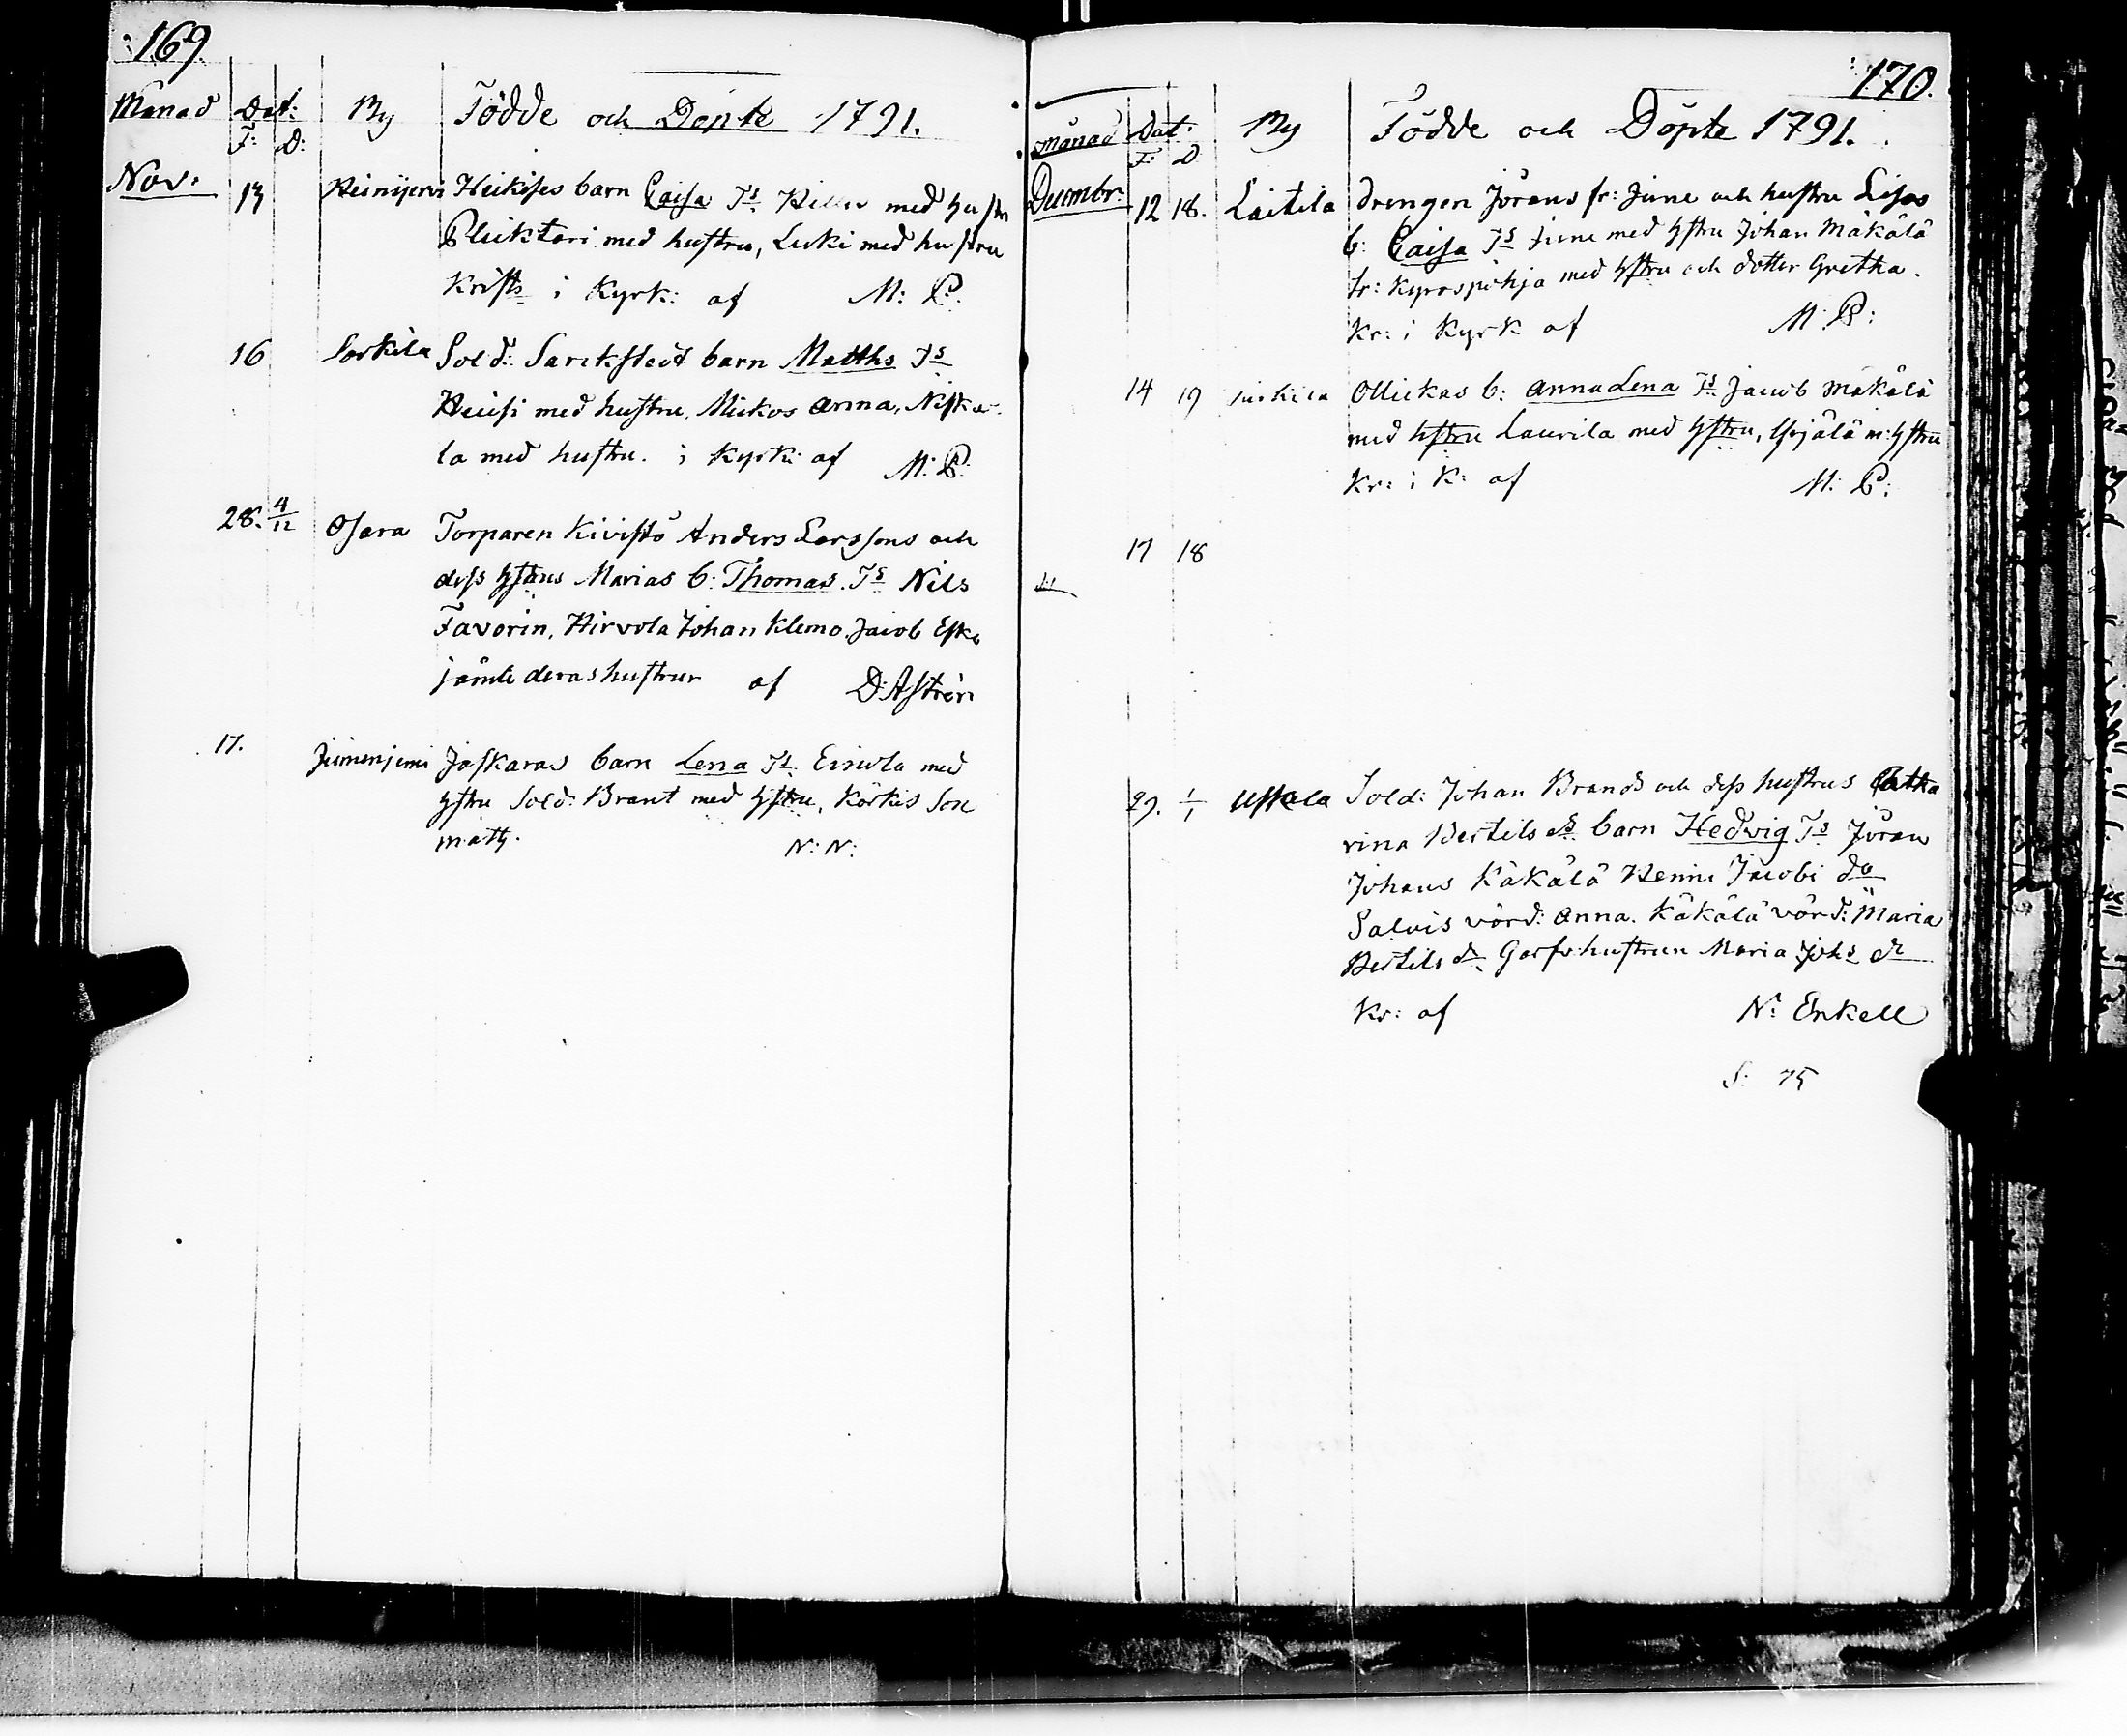 169.
Månad Dat: By Födde och Döpte 1791.
F: D:
Nov: 13 Heinijervi Heikises barn Caisa Ts Hiller med hustru
Pleiktari med hustru, Luki med hustru
Krists i Kyrk: af M: P.
16 Sorkila Sold: Sarckstedt barn Matths Ts
Heisi med hustru, Mickos Anna, Niska-
la med hustru. i Kyrk: af M: P.
28. 4/12 Osara Torparen Kivistö Anders Larssons och
dess hstrus Marias b: Thomas. Ts Nils
Favorin, Hirvola Johan Klemo. Jacob Esko
jämte deras hustrur af D: Aströn
17. Jaskaras barn Lena Ts. Eirola med
hstru Sold: Brant med hstru, Körkis Son
Math. N: N:
170.
Månad Dat: By Födde och Döpte 1791.
F: D
Decembr: 12 18. Laitila Drengen Jörans fr: June och hustru Lisas
b: Caisa Ts June med hstru Johan Mäkälä
fr: Kyrospohja med hstru och dotter Gretha.
Kr: i Kyrk af M: P:
14 19 Ollickas b: Anna Lena Ts Jacob Mäkälä
med hstru Laurila med hstru, m: hstru
Kr: i K: af M: P:
17 18
29. 1/1 Uskala Sold: Johan Brands och dess hustrus Catha
rina Bertils dr barn Hedvig Ts Jöran
Johans Käkälä Henric Jacobi do
Salvis värd: Anna. Käkälä värd: Maria
Bertils dr, hustrun Maria Johs dr
Kr: af N: Enkell
S: 75